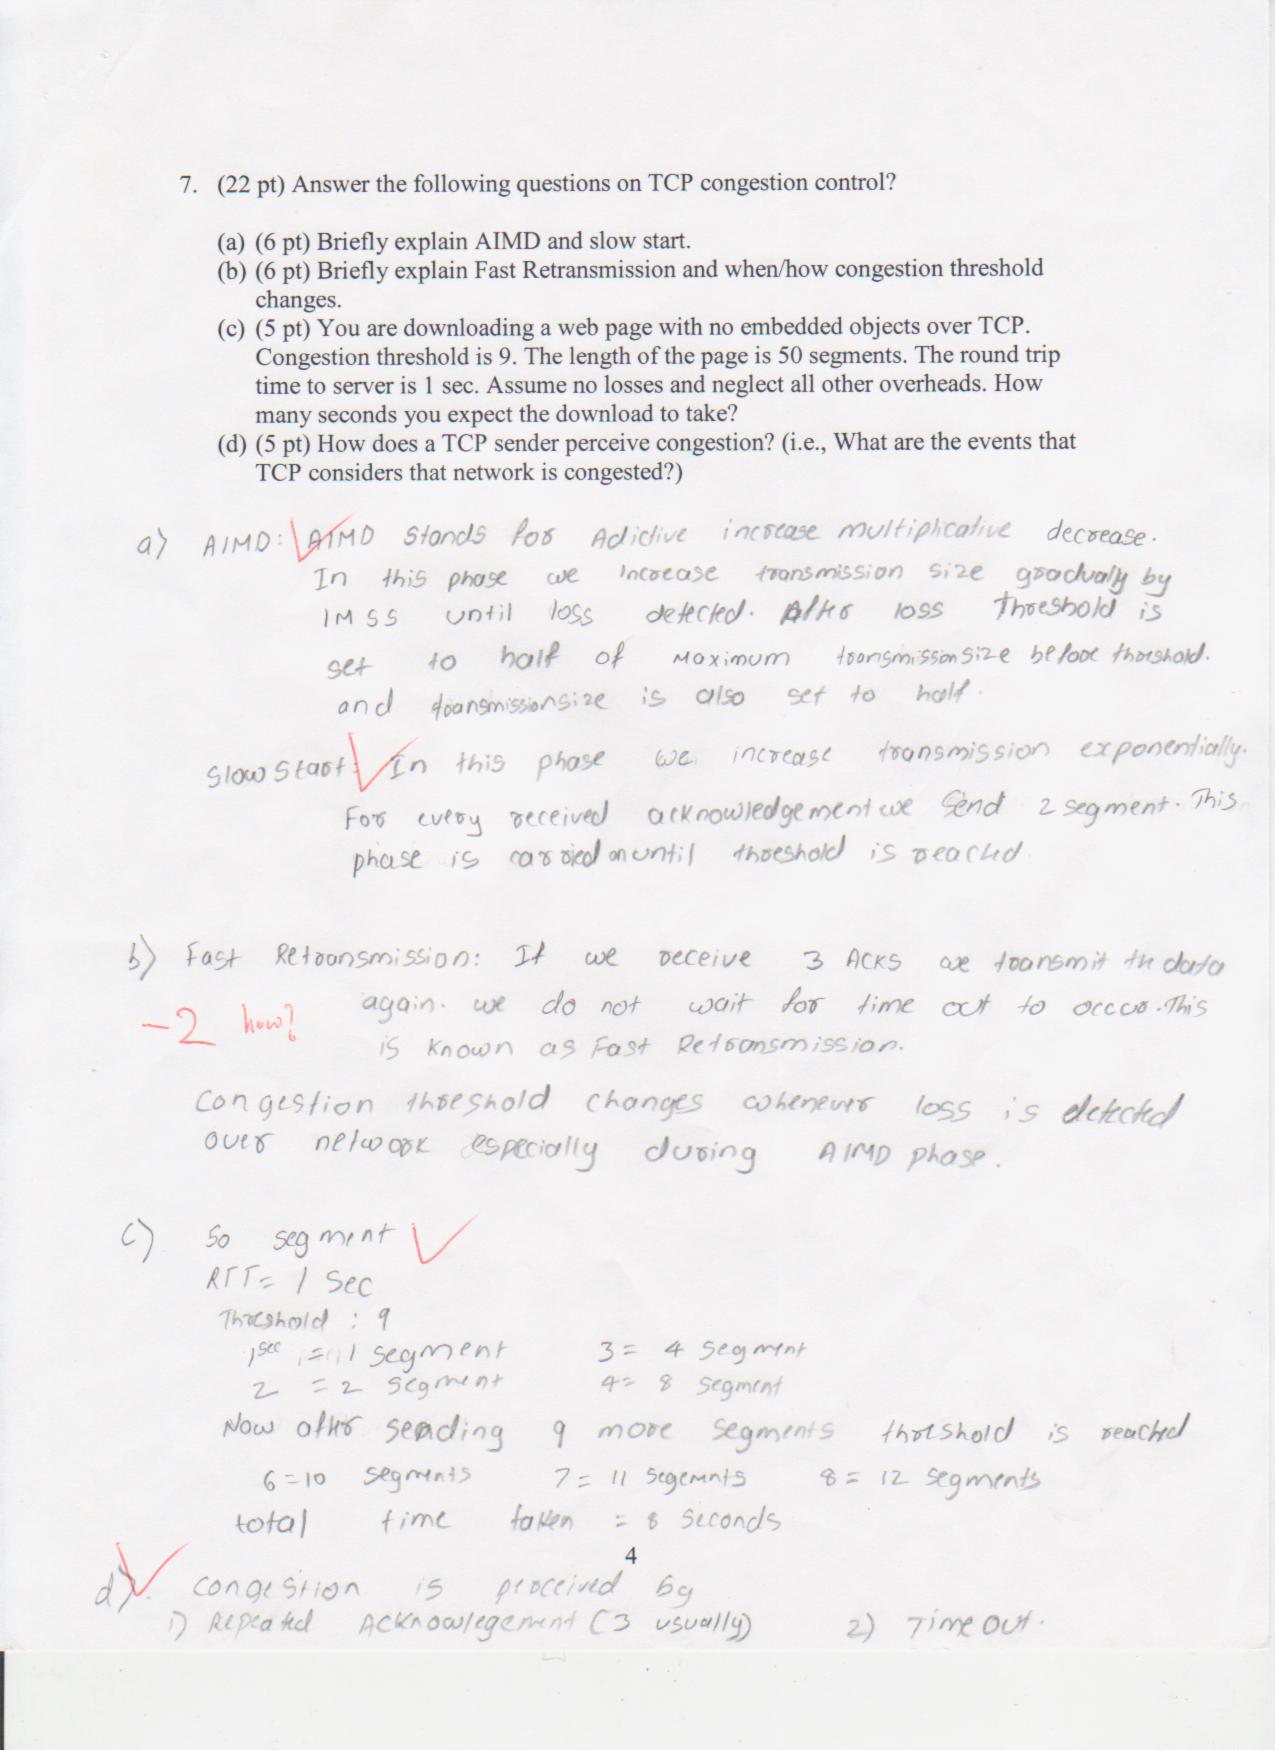 7. (22 pt) Answer the following questions on TCP congestion control?
(a) (6 pt) Briefly explain AIMD and slow start.
(b) (6 pt) Briefly explain Fast Retransmission and when/how congestion threshold
changes.
(c) (5 pt) You are downloading a web page with no embedded objects over TCP.
Congestion threshold is 9. The length of the page is 50 segments. The round trip
time to server is 1 sec. Assume no losses and neglect all other overheads. How
many seconds you expect the download to take?
(d) (5 pt) How does a TCP sender perceive congestion? (i.e., What are the events that
TCP considers that network is congested?)
a) AIMD: AIMD stands for Adictive increase multiplicative decrease.
In this phase we increase transmission size gradually by
1 MSS until loss detected. After loss Threshold is
set to half of Maximum transmission size before thorshold.
and transmissionsize is also set to half.
Slow Start: In this phase we increase transmission exponentially.
For every received acknowledgement we send 2 segment. This
phase is carried on until threshold is reached
b) Fast Retransmission: If we receive 3 ACKS we transmit th data
-2 how?
again. we do not wait for time out to occur. This
is known as Fast Retransmission.
Congestion threshold changes whenever loss is detected
over network especially during AIMD phase.
c) 50 segment
RTT= 1 Sec
Threshold : 9
1sec = 1 segment 3 = 4 segment
2 = 2 segment 4= 8 segment
Now after sending 9 more segments threshold is reached
6=10 segments 7= 11 segemnts 8= 12 segments
total time taken = 8 seconds
4
d). Congestion is perceived by
1) Repeated Acknowlegement (3 usually) 2) Time Out.